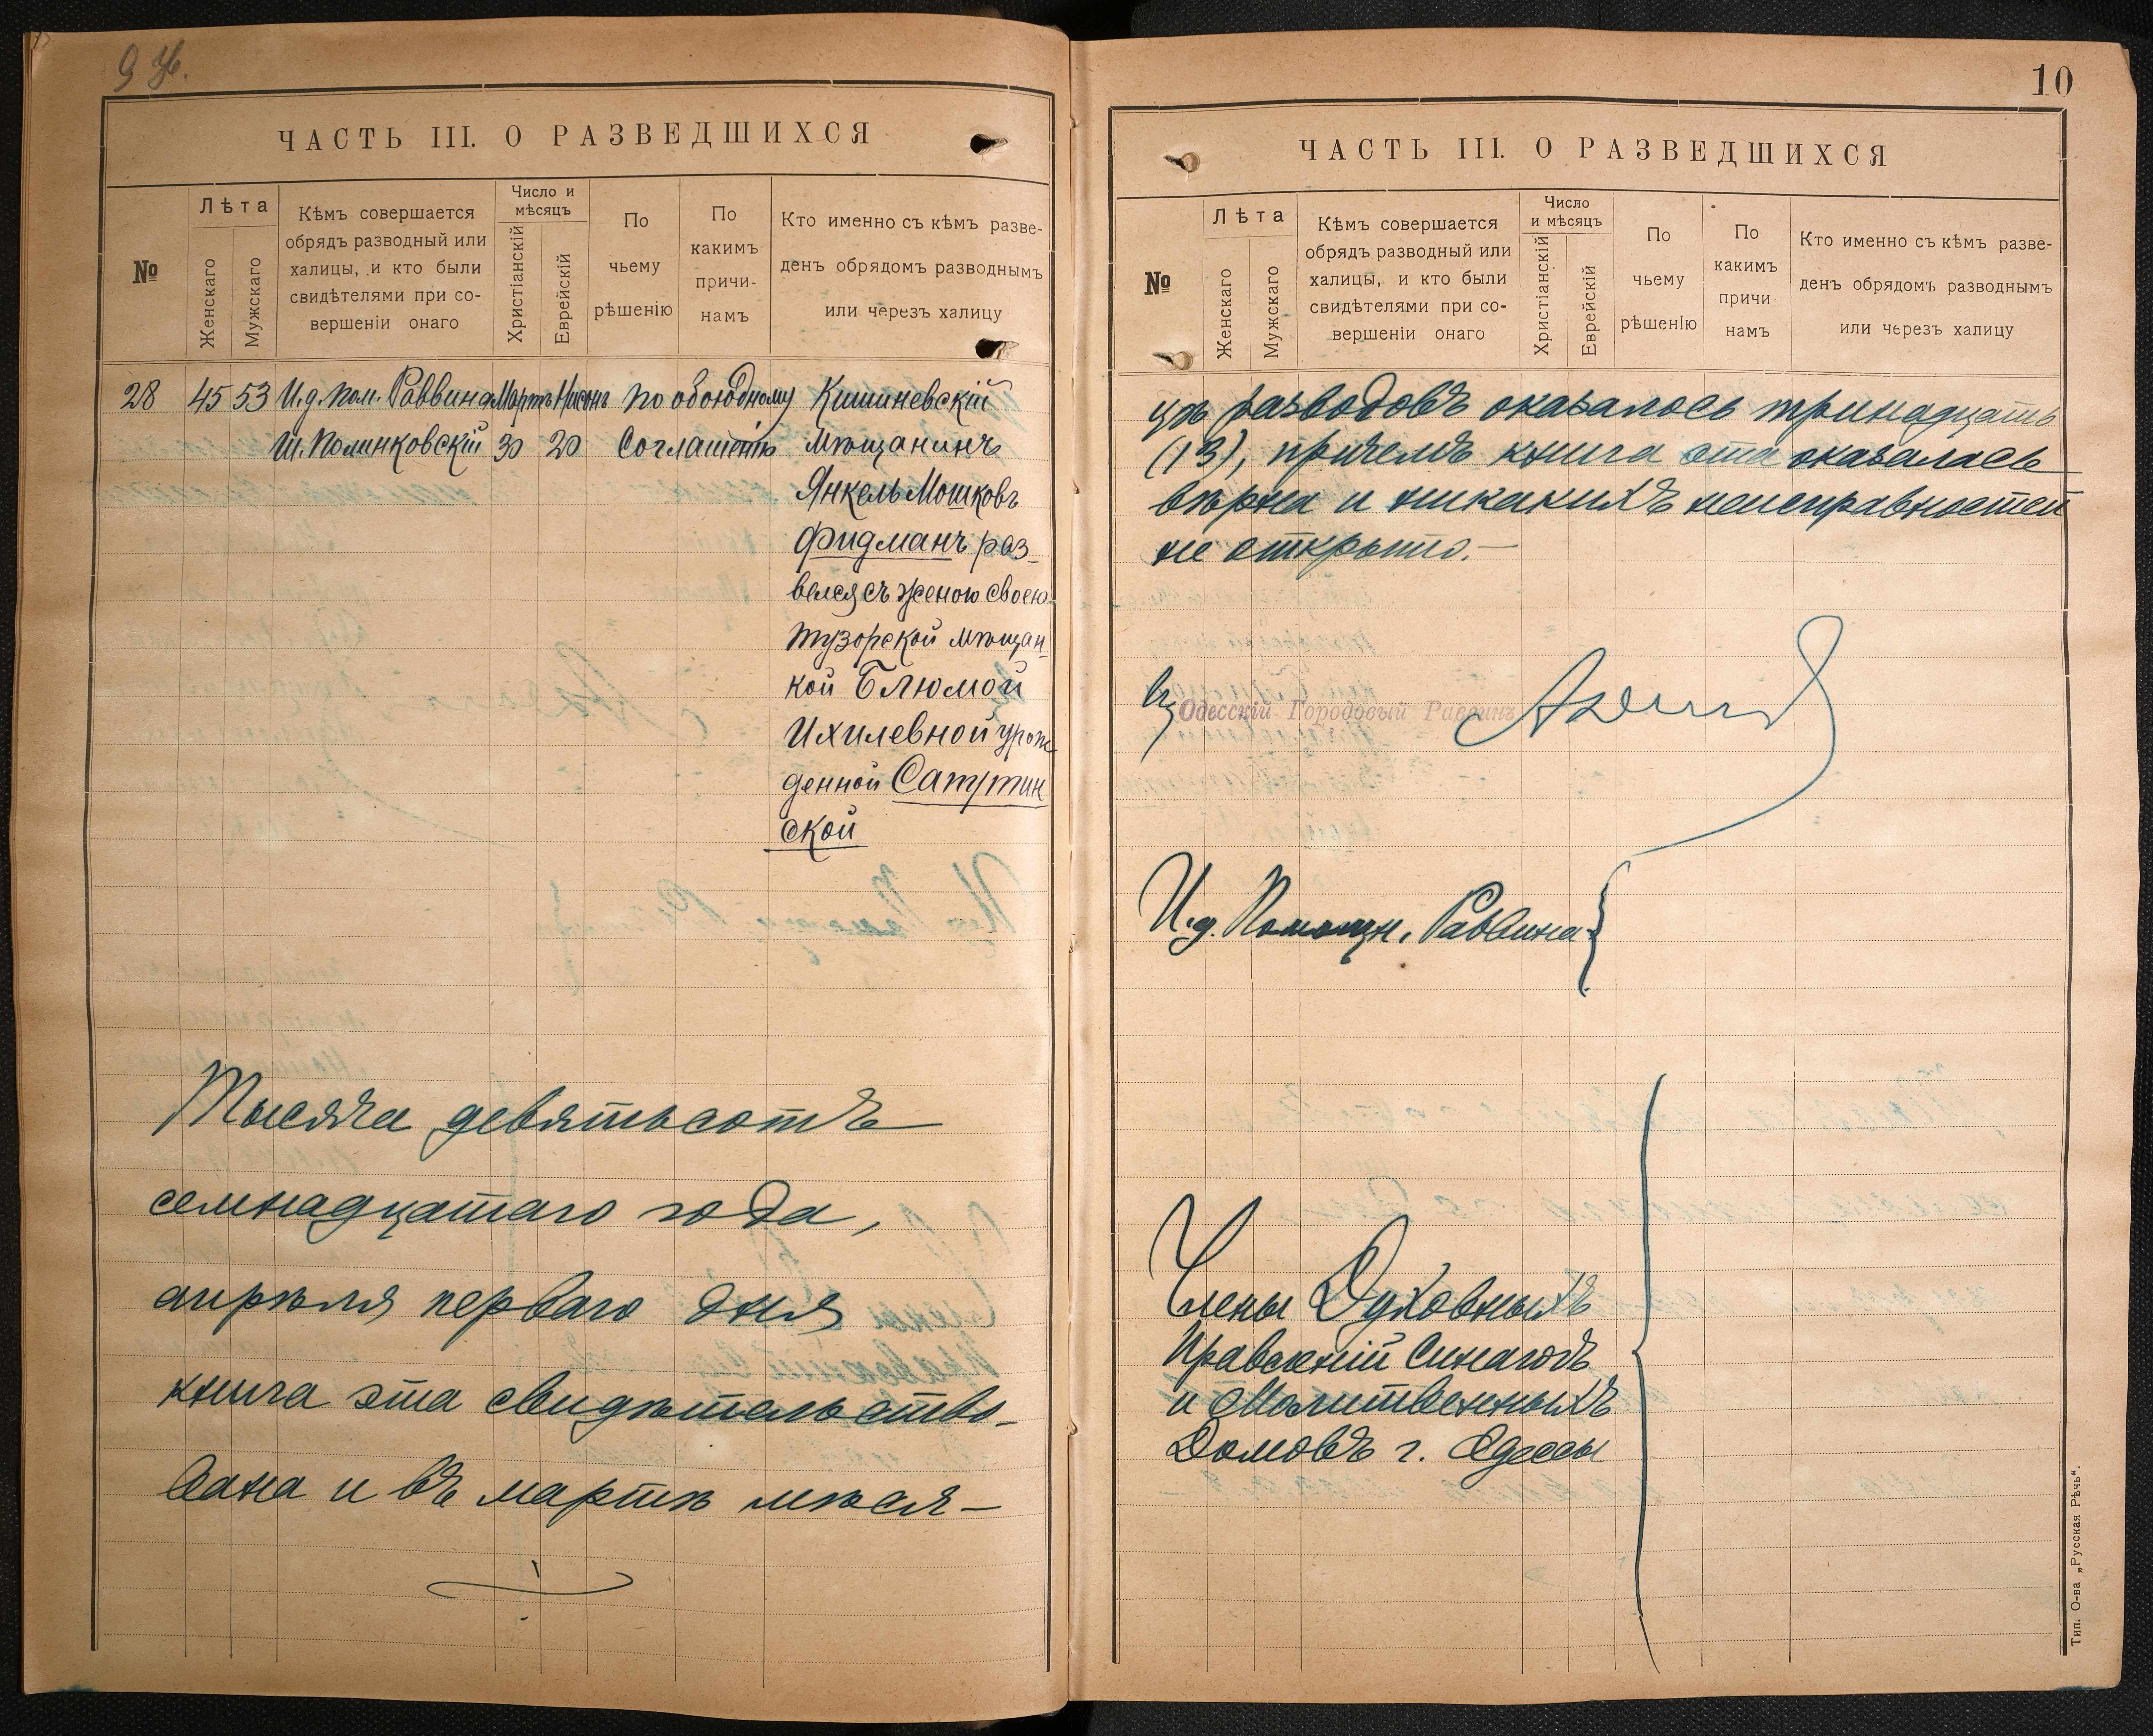 ЧАСТЬ III. О РАЗВЕДШИХСЯ
№
Лѣта
Женскаго
Мужскаго
Кѣмъ совершается
обрядъ разводный или
халицы, и кто были
свидѣтелями при со-
вершеніи онаго
Число и
мѣсяцъ
Христіанскій
Еврейскій
По
чьему
рѣшенію
По
какимъ
причи-
намъ
Кто именно съ кѣмъ разве-
денъ обрядомъ разводнымъ
или черезъ халицу
28 45 53 И.д. пом. Раввина Мартъ Нисонъ По обоюдному Кишиневскій
Ш. Полинковскій 30 20 Соглашенію мѣщанинъ
Янкель Мошковъ
Фидманъ раз-
велся съ женою своею
Тузорской мѣщан-
кой Блюмой
Ихилевной урож-
денной Сатутин
ской
Тысяча девятьсотъ
семнадцатаго года,
апрѣля перваго дня
книга эта свидѣтельство-
вана и въ мартѣ мѣся-
10
ЧАСТЬ III. О РАЗВЕДШИХСЯ
№
Лѣта
Женскаго
Мужскаго
Кѣмъ совершается
обрядъ разводный или
халицы, и кто были
свидѣтелями при со-
вершеніи онаго
Число
и мѣсяцъ
Христіанскій
Еврейскій
По
чьему
рѣшенІю
По
какимъ
причи
намъ
Кто именно съ кѣмъ разве-
денъ обрядомъ разводнымъ
или черезъ халицу
цѣ разводовъ оказалось тринадцать
(13), причемъ книга эта оказалась
вѣрна и никакихъ неисправностей
не открыто.—
Одесскій Городовый Раввинъ
И.д. Помощн. Раввина
Члены Духовныхъ
Правленій Синагогъ
и Молитвенныхъ
Домовъ г. Одессы
Тип. О-ва „Русская Рѣчь“.